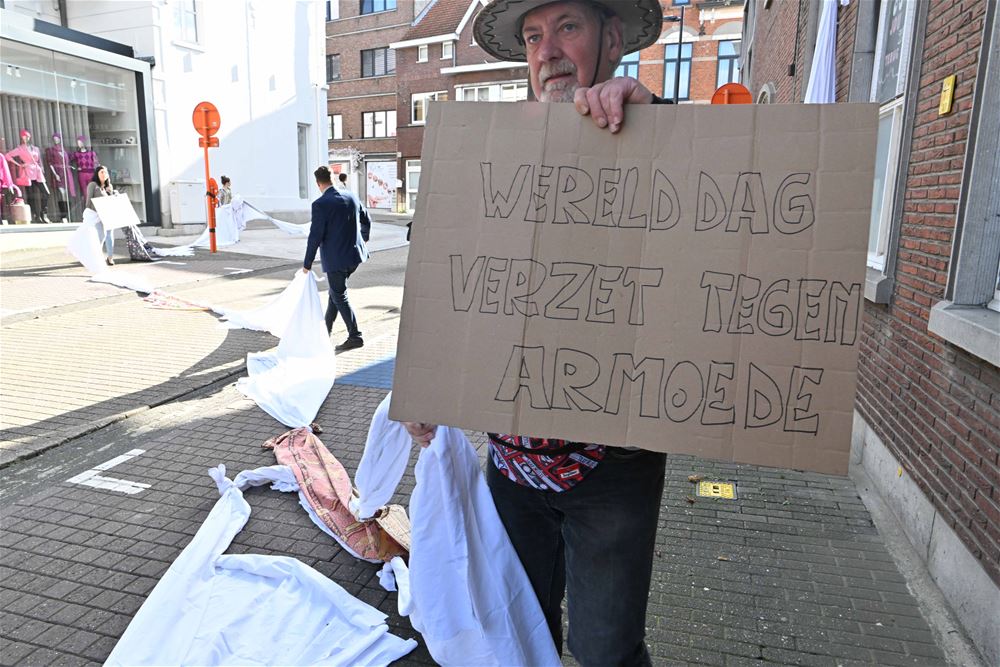 WERELDDAG
VERZET TEGEN
ARMOEDE